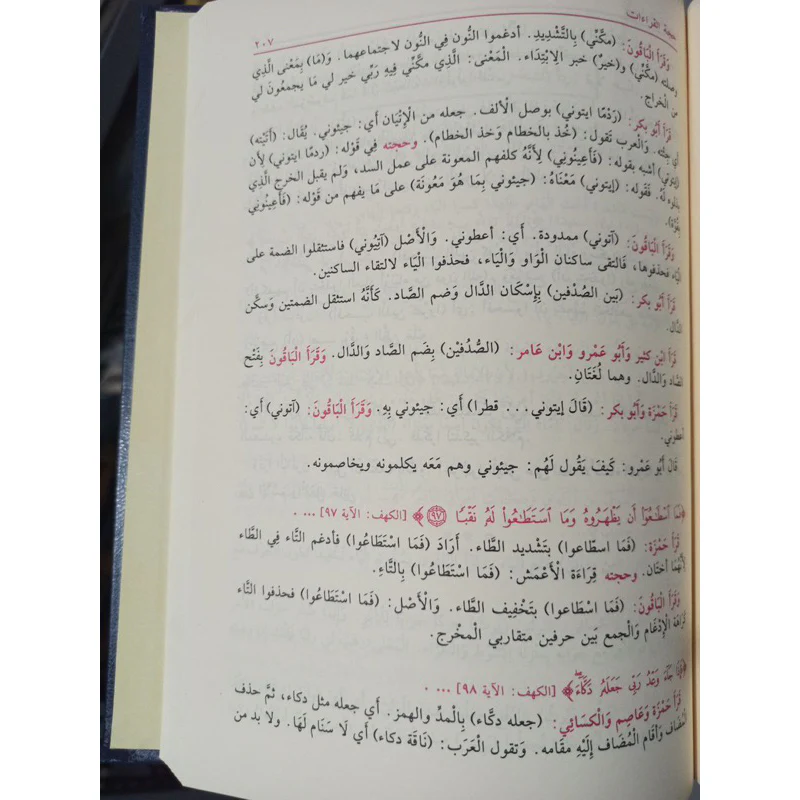 حجة القراءات
٢٠٧
وَقَرَأَ الْبَاقُونَ: (مكَّنِّي) بِالتَّشْدِيدِ. أدغموا النُّون فِي النُّون لاجتماعهما. وَ(مَا) بِمَعْنى الَّذِي
وصلته (مكَّنِّي) و(خيرٌ) خبر الِابْتِدَاء. الْمَعْنى: الَّذِي مكَّنِّي فِيهِ رَبِّي خير لي مَا يجمعُونَ لي
من الْخراج.
قَرَأَ أَبُو بكر: (رَدْمًا ايتوني) بوصل الْألف. جعله من الْإِتْيَان أَي: جيئوني. يُقَال: (أَتَيْته)
أَي جِئْته. وَالْعرب تَقول: (خُذ بالخطام وَخذ الخطام). وحجته فِي قَوْله: (ردمًا ايتوني) لِأَن
(إيتوني) أشبه بقوله: (فَأَعِينُونِي) لِأَنَّهُ كلفهم المعونة على عمل السد، وَلم يقبل الخرج الَّذِي
بذلوه لَهُ. فَقَوله: (إيتوني) مَعْنَاهُ: (جيئوني بِمَا هُوَ مَعُونَة) على مَا يفهم من قَوْله: (فَأَعِينُونِي
بِقُوَّة).
وَقَرَأَ الْبَاقُونَ: (آتوني) ممدودة. أَي: أعطوني. وَالْأَصْل (آتِيُوني) فاستثقلوا الضمة على
الْيَاء فحذفوها، فَالتقى ساكنان الْوَاو وَالْيَاء، فحذفوا الْيَاء لالتقاء الساكنين.
قَرَأَ أَبُو بكر: (بَين الصُدْفين) بِإِسْكَان الدَّال وَضم الصَّاد. كَأَنَّهُ استثقل الضمتين وَسكَّن
الدَّال.
قَرَأَ ابْن كثير وَأَبُو عَمْرو وَابْن عَامر: (الصُّدُفَيْن) بِضَم الصَّاد وَالدَّال. وَقَرَأَ الْبَاقُونَ بِفَتْح
الصَّاد وَالدَّال. وهما لُغَتَانِ.
قَرَأَ حَمْزَة وَأَبُو بكر: (قَالَ إيتوني... قطرا) أَي: جيئوني بِهِ. وَقَرَأَ الْبَاقُونَ: (آتوني) أَي:
أعطوني.
قَالَ أَبُو عَمْرو: كَيفَ يَقُول لَهُم: جيئوني وهم مَعَه يكلمونه ويخاصمونه.
﴿فَمَا ٱسۡطَٰعُوٓاْ أَن يَظۡهَرُوهُ وَمَا ٱسۡتَطَٰعُواْ لَهُۥ نَقۡبٗا ٩٧﴾ [الكهف: الآية ٩٧] ... .
قَرَأَ حَمْزَة: (فَمَا اسطّاعوا) بتَشْديد الطَّاء. أَرَادَ (فَمَا اسْتَطَاعُوا) فأدغم التَّاء فِي الطَّاء
لِأَنَّهُمَا أختَان. وحجته قِرَاءَة الْأَعْمَش: (فَمَا اسْتَطَاعُوا) بِالتَّاءِ.
وَقَرَأَ الْبَاقُونَ: (فَمَا اسْطاعوا) بتَخْفِيف الطَّاء. وَالْأَصْل: (فَمَا اسْتَطَاعُوا) فحذفوا التَّاء
كَرَاهَة الْإِدْغَام وَالْجمع بَين حرفين متقاربي الْمخْرج.
﴿فَإِذَا جَآءَ وَعۡدُ رَبِّي جَعَلَهُۥ دَكَّآءَۖ﴾ [الكهف: الآية ٩٨] ... .
قَرَأَ حَمْزَة وَعَاصِم وَالْكسَائِيّ: (جعله دكَّاء) بِالْمدِّ والهمز. أَي جعله مثل دكاء، ثمَّ حذف
الْمُضَاف وَأقَام الْمُضَاف إِلَيْهِ مقَامه. وَتقول الْعَرَب: (نَاقَة دكاء) أَي لَا سَنَام لَهَا. وَلَا بد من